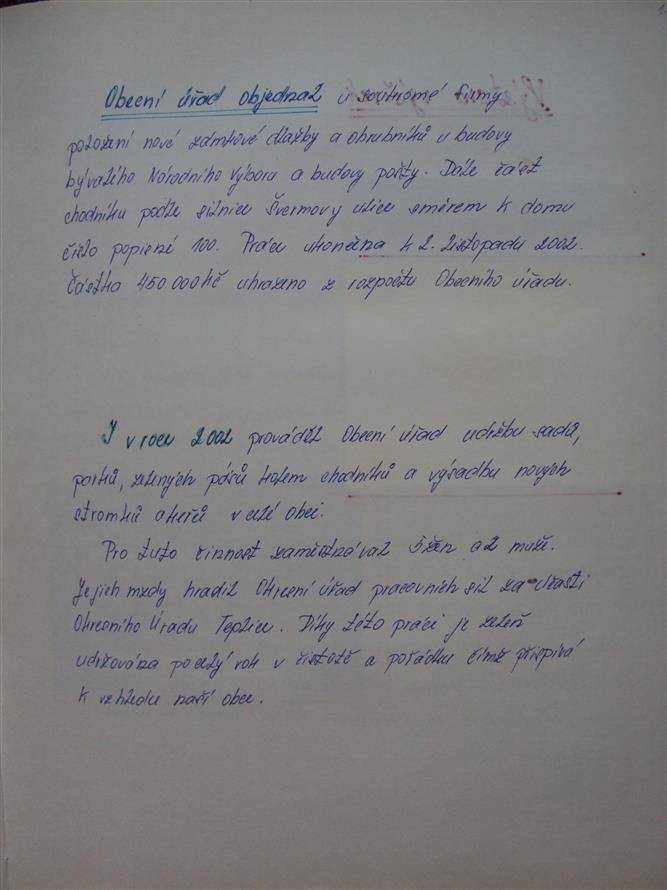 Obecní úřad objednal u soukromé firmy
položení nové zámkové dlažby a obrubníků u budovy
bývalého Národního výboru a budovy pošty. Dále část
chodníku podle silnice Švermovy ulice směrem k domu
číslo popisné 100. Práce ukončena k 2. listopadu 2002.
Částka 450 000 kč uhrazeno z rozpočtu Obecního úřadu.
I v roce 2002 prováděl Obecní úřad udržbu sadů,
parků, zelených pásů kolem chodníků a výsadbu nových
stromků a keřů v celé obci.
Pro tuto činnost zaměstnával 5 žen a 2 muže.
Jejich mzdy hradil Okresní úřad pracovních sil za účasti
Okresního Úřadu Teplice. Díky této práci je zeleň
udržována po celý rok v čistotě a pořádku čímž přispívá
k vzhledu naší obce.